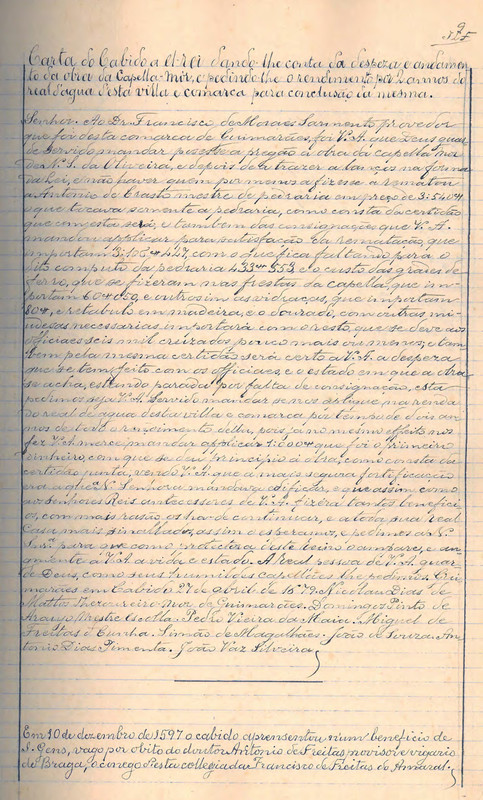 9
Carta do Cabido a el-rei dando-lhe conta da despeza e andamen-
to da obra da Capella-mór, e pedindo-lhe o rendimento por 2 annos do
real d'agua d'esta villa e comarca para conclusão da mesma.
Senhor. Ao Dr. Francisco de Moraes Sarmento provedor
que foi desta comarca de Guimarães, foi V. A. que Deus guar-
de servido mandar pozesse a pregão a obra da capella mór
de N. S. da Oliveira, e depois de a trazer a lanços na forma
da Lei, e não haver quem por menos a fizesse a rematou
a Antonio do Crasto mestre de pedraria em preço de 3:540$
o que tocava somente a pedraria, como consta da certidão
que com esta será, e tambem das consignações que V. A.
mandou applicar para satisfação da rematação, que
importam 3:105$447, com o que fica faltando para o
dito computo da pedraria 433$553 e o custo das grades de
ferro, que se fizeram nas frestas da capella, que im-
portam 60$050, e outrosim as vidraças, que importam
80$, e retabulo em madeira, e o dourado, com outras mi-
udesas necessarias importará com o resto, que se deve aos
officiaes seis mil cruzados pouco mais ou menos; e tam-
bem pela mesma certidão será certo a V. A. a despeza
que se tem feito com os officiaes, e o estado em que a obra
se acha, estando parada por falta de consignação, esta
pedimos seja V. A. servido mandar se nos aplique na renda
do real de agua desta villa e comarca por tempo de dois an-
nos de todo o rendimento della, pois já no mesmo effeito nos
fez V. A. merce mandar applicar 1:000$ que foi o primeiro
dinheiro, com que se deu principio á obra, como consta da
certidão junta, vendo V. A. que a mais segura fortificação
é a que N. Senhora mandava edificar, e que assim como
os senhores Reis antecessores de V. A. fizerão tantos benefici-
os, com mais rasão os ha de continuar, e a toda sua real
Casa mais vincullados, assim o esperamos, e pedimos a N.
Snrª para que como protectora deste reino o ampare, e au-
gmente a V. A. a vida e estado. A Real pessoa de V. A. guar-
de Deus, como seus humildes capellães lhe pedimos. Gui-
marães em Cabido 27 de abril de 1679. Nicolau Dias de
Mattos Thezoureiro-mor de Guimarães. Domingos Pinto de
Araujo Mestre Escolla. Pedro Vieira da Maia. Miguel de
Freitas e Cunha. Simão de Magalhães. João de Souza. An-
tonio Dias Pimenta. João Vaz Silveira
Em 10 de dezembro de 1597 o cabido aprensentou n'um beneficio de
S. Gens, vago por obito do doutor Antonio de Freitas, provisor e vigario
de Braga, o conego d'esta collegiada Francisco de Freitas do Amaral.